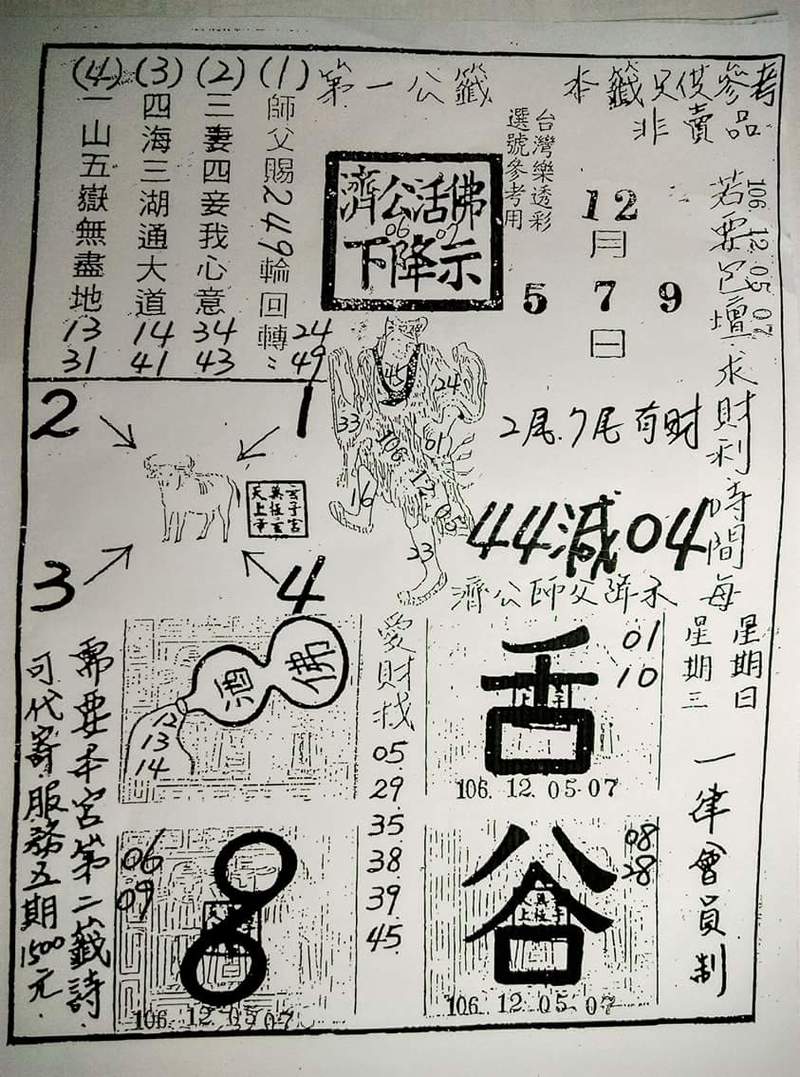 本籤只供參考
非賣品
第一公籤
(1)師父賜249輪回轉
24
49
(2)三妻四妾我心意
34
43
(3)四海三湖通大道
14
41
(4)一山五嶽無盡地
13
31
濟公活佛
06 07
下降示
台灣樂透彩
選號參考用
12
月
5 7 9
日
106 12 05 07
求財利時間每
星期日
星期三
一律會員制
2尾.7尾有財
44減04
濟公師父降示
45
24
33
01
16
23
2
1
3
4
佛
酒
12
13
14
愛財找
05
29
35
38
39
45
舌
01
10
106. 12. 05-07
06
09
8
106. 12. 05 07
谷
08
28
106. 12. 05. 07
需要本宮第二籤詩
可代寄.服務五期1500元.